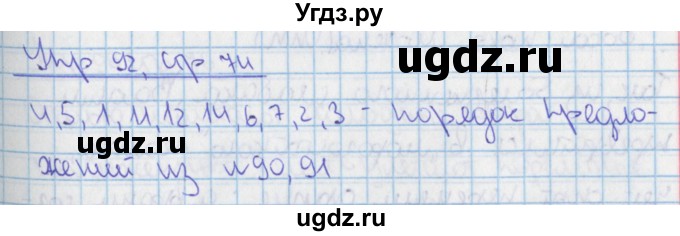 Угдз.ру
Упр 92, стр 74
ugdz.ru
ugdz.ru
4,5,1,11,12,14,6,7,2,3 - порядок предло-
ugdz.ru
ugdz.ru
жений из №90,91
ugdz.ru
ugdz.ru